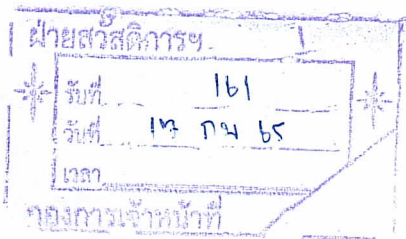 ฝ่ายสวัสดิการฯ
รับที่ 161
วันที่ 17 กพ 65
เวลา
กองการเจ้าหน้าที่